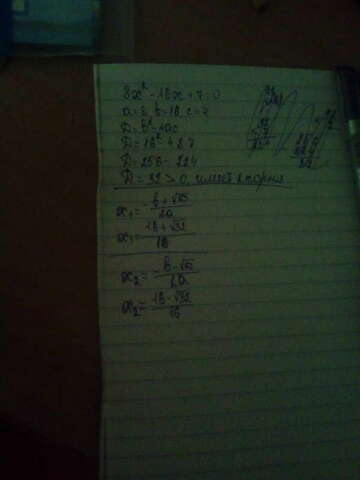 8x² - 16x + 7 = 0
a = 8, b = 16, c = 7
D = b² - 4ac
D = 16² - 4·8·7
D = 256 - 224
D = 32 > 0, имеет 2 корня
x₁ = -b + √D / 2a
x₁ = 16 + √32 / 16
x₂ = -b - √D / 2a
x₂ = 16 - √32 / 16